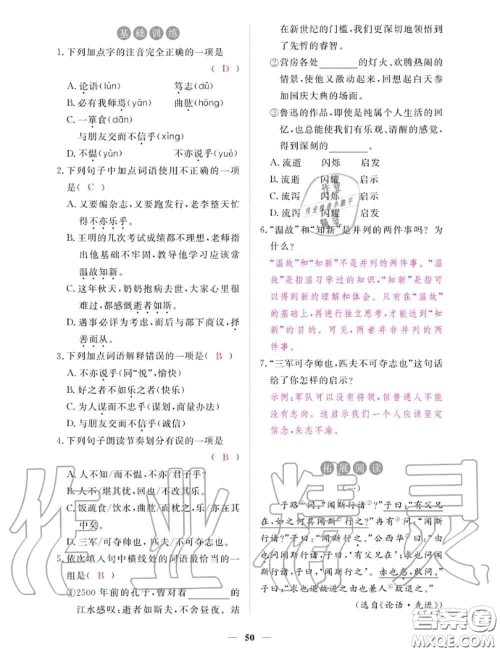 基础训练
1.下列加点字的注音完全正确的一项是
( D )
A. 论语(lùn) 笃志(dǔ)
B. 必有我师焉(yān) 曲肱(hóng)
C. 一箪食(dān)
与朋友交而不信乎(xìng)
D. 不愠(yùn) 不亦说乎(yuè)
2.下列句子中加点词语使用不正确的一项
是( C )
A. 又要编杂志,又要跑发行,老李整天忙
得不亦乐乎。
B. 王明的几次考试成绩都不理想,老师指
出他基础不牢固,教导他学习应该常
温故知新。
C. 这年秋天,奶奶抱病去世,大家心里很
难过,都感慨逝者如斯。
D. 遇事必详为考虑,而后至当处理,择
善而从。
3.下列加点词语解释错误的一项是( B )
A. 不亦说乎(同“悦”,愉快)
B. 好之者不如乐之者(快乐)
C. 为人谋而不忠乎(谋划,商量办法)
D. 与朋友交而不信乎(诚信)
4.下列句子朗读节奏划分有误的一项是
( B )
A. 人不知/而不愠,不亦/君子乎?
B. 人不/堪其忧,回也/不改其乐。
C. 饭疏食/饮水,曲肱/而枕之,乐亦/在
其中矣。
D. 三军/可夺帅也,匹夫/不可夺志也。
5.依次填入句中横线处的词语最恰当的一
组是( B )
①2500年前的孔子,曾对着________的
江水感叹:逝者如斯夫,不舍昼夜。站
在新世纪的门槛,我们更深切地领悟到
了先哲的睿智。
②营房各处________的灯火、欢腾热闹的
情景,使他又激动起来,回想起白天参
加国庆大典的场面。
③鲁迅的作品,即使是纯属个人生活的回
忆,也总能使我们有乐观、清醒的感觉,
得到________。
A. 流逝 闪烁 启发
B. 流逝 闪耀 启示
C. 流泻 闪耀 启发
D. 流泻 闪烁 启示
6.“温故”和“知新”是并列的两件事吗? 为
什么?
“温故”和“知新”不是并列的两件事。“温
故”是指温习学过的知识,“知新”是指可
以得到新的理解和体会。只有在“温故”
的基础上,再进行独立思考,才能达到“知
新”的目的。可见,两者并非并列的两件
事。
7.“三军可夺帅也,匹夫不可夺志也”这句话
给了你怎样的启示?
示例:军队可以没有将领,但普通人不能
没有志向。这启示我们一个人应该坚定
信念,矢志不渝。
拓展阅读
子路问:“闻斯行诸?”子曰:“有父兄
在,如之何其闻斯行之?”冉有问:“闻斯
行诸?”子曰:“闻斯行之。”公西华
(选自《论语·先进》)
50
作业精灵
答案圈
MXQE.COM